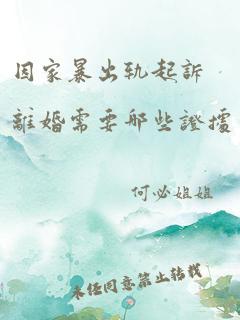 因家暴出轨起訴
離婚需要哪些證據
何必姐姐
未经同意禁止转载